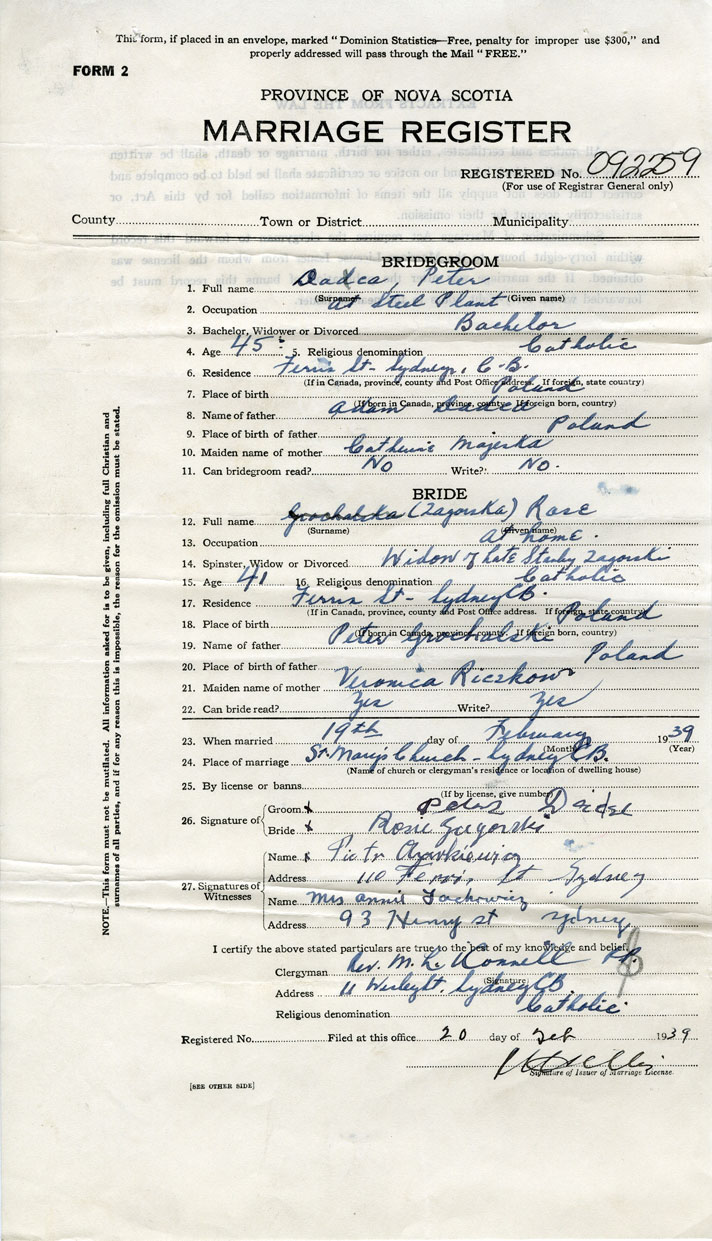 This form, if placed in an envelope, marked "Dominion Statistics—Free, penalty for improper use $300," and
properly addressed will pass through the Mail "FREE."
FORM 2
PROVINCE OF NOVA SCOTIA
MARRIAGE REGISTER
REGISTERED No. 092259
(For use of Registrar General only)
County Town or District Municipality
BRIDEGROOM
1. Full name Dadca, Peter
(Surname) (Given name)
2. Occupation at Steel Plant
3. Bachelor, Widower or Divorced Bachelor
4. Age 45 5. Religious denomination Catholic
6. Residence Ferris St- Sydney, C.B.
(If in Canada, province, county and Post Office address. If foreign, state country)
7. Place of birth Poland
(If born in Canada, province, county. If foreign born, country)
8. Name of father Adam Dadca
9. Place of birth of father Poland
10. Maiden name of mother Catherine Majerka
11. Can bridegroom read? No Write? No.
BRIDE
12. Full name Grochalska (Zagorska) Rose
(Surname) (Given name)
13. Occupation At home.
14. Spinster, Widow or Divorced Widow of late Stanley Zagorski
15. Age 41 16. Religious denomination Catholic
17. Residence Ferris St- Sydney CB.
(If in Canada, province, county and Post Office address. If foreign, state country)
18. Place of birth Poland
(If born in Canada, province, county. If foreign born, country)
19. Name of father Peter Grochalski
20. Place of birth of father Poland
21. Maiden name of mother Veronica Riczkow
22. Can bride read? Yes Write? Yes
23. When married 19th day of February 1939
(Month) (Year)
24. Place of marriage St. Mary's Church - Sydney CB.
(Name of church or clergyman's residence or location of dwelling house)
25. By license or banns
(If by license, give number)
26. Signature of
Groom x Peter
Bride x Rosie
27. Signatures of Witnesses
Name x Piotr
Address 110 Ferris St Sydney
Name Mrs Annie
Address 93 Henry st Sydney
I certify the above stated particulars are true to the best of my knowledge and belief.
Clergyman Rev. M. L. O'Connell P.P.
(Signature)
Address 11 Wesley St. Sydney CB.
Religious denomination Catholic
Registered No. Filed at this office 20 day of Feb 1939
Signature of Issuer of Marriage License.
[SEE OTHER SIDE]
NOTE.—This form must not be mutilated. All information asked for is to be given, including full Christian and
surnames of all parties, and if for any reason this is impossible, the reason for the omission must be stated.